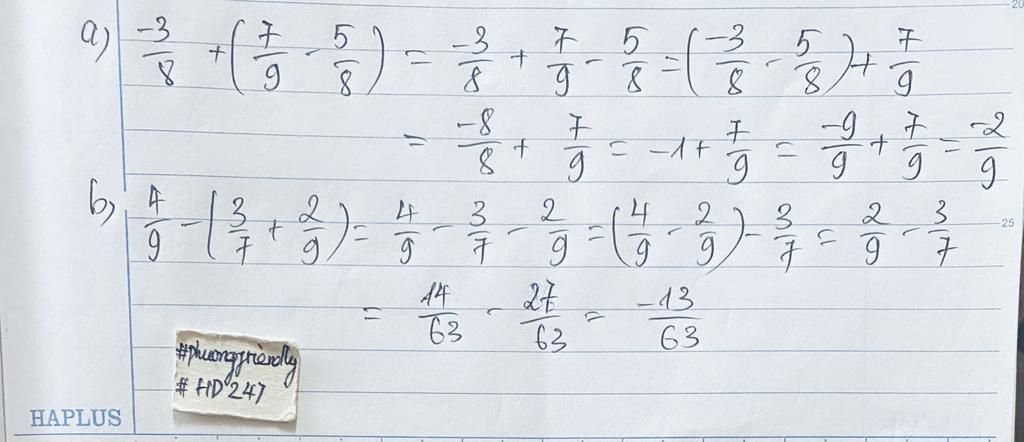 a) -3/8 + (7/9 - 5/8) = -3/8 + 7/9 - 5/8 = (-3/8 - 5/8) + 7/9
= -8/8 + 7/9 = -1 + 7/9 = -9/9 + 7/9 = -2/9
b) 4/9 - (3/7 + 2/9) = 4/9 - 3/7 - 2/9 = (4/9 - 2/9) - 3/7 = 2/9 - 3/7
= 14/63 - 27/63 = -13/63
#phuongfriendly
# HD247
HAPLUS
20
25